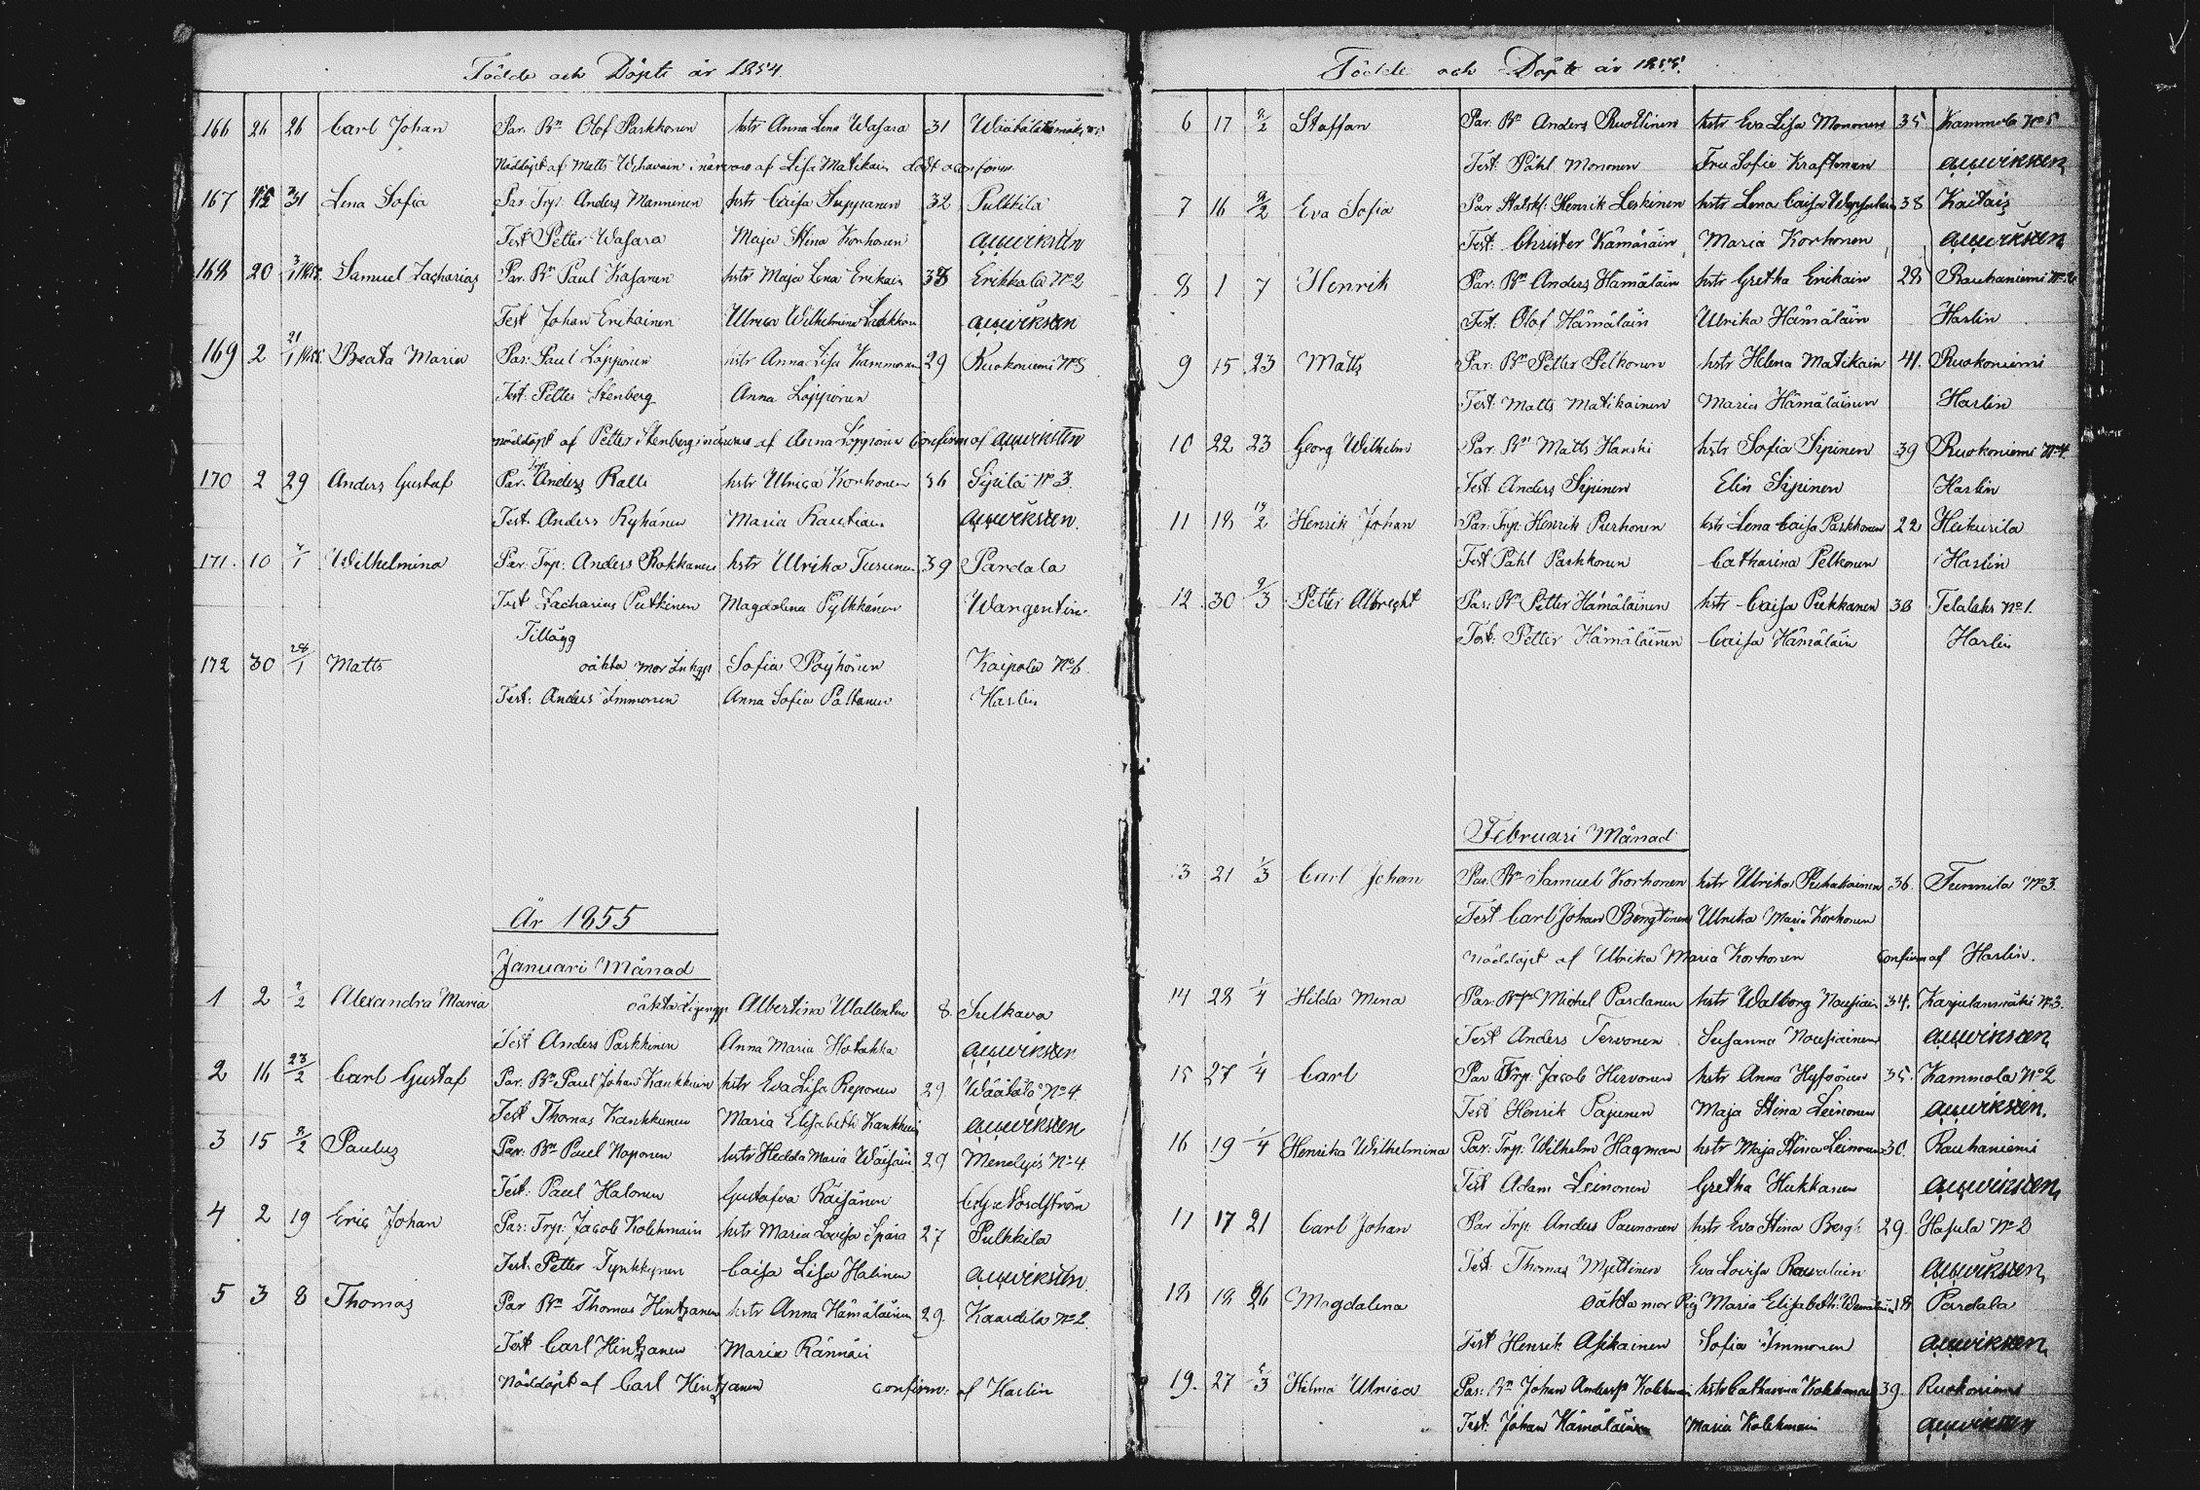 Födde och Döpte år 1854
166 26 26 Carl Johan Par. Bn Olof Parkkonen hstr Anna Lena Wasara 31
Nöddöpt af Matts af Lisa Matikain
167 31 Lena Sofia Par. Trp. Anders Manninen hstr Caisa Suppanen 32 Pulkkila
Test Petter Wasara Maja Stina Korhonen
168 20 Samuel Zacharias Par. Bn Paul Kasanen hstr Maja Lena Erikain 38 Erikkala No 2
Test Johan Erikainen Ulrica Wilhelmina
169 2 Beata Maria Par: Paul Löppönen hstr Anna Lisa Kammonen 29 Ruokoniemi No
Test: Petter Stenberg Anna Löppönen
nöddöpt af Petter Stenberg i närvaro af Anna Löppönen Confirm af
170 2 29 Anders Gustaf Par. Anders Ralli hstr Ulrica Korhonen 36 Sipilä No 3.
Test. Anders Ryhänen Maria Rautiain
171. 10 Wilhelmina Par. Trp. Anders Rokkanen hstr Ulrika Turunen 39 Pardala
Test Zacharias Putkinen Magdalena Pylkkänen Wangentin
Tillägg
172 30 28/1 Matts oäkta mor Inhyss Sofia Pöyhönen Kaipola No 6
Test: Anders Immonen Anna Sofia Paltanen Harlin
År 1855
Januari Månad
1 2 2/2 Alexandra Maria oäkta Albertina Wallenten 8. Sulkava
Test Anders Parkkinen Anna Maria Hatakka
2 16 23/2 Carl Gustaf Par. Bn Paul Johan Kankkunen hstr Eva Lisa Reponen 29 Wäätälä No 4.
Test Thomas Kankkunen Maria Elisabeth Kankkuin
3 15 2/2 Paulus Par. Bn Paul Naponen hstr Hedda Maria Wäisäin 29 No 4
Test: Paul Halonen Gustafva Räisänen Nordström
4 2 19 Eric Johan Par: Trp. Jacob Kolehmain hstr Maria Lovisa 27 Pulkkila
Test. Petter Tynkkynen Caisa Lisa Halinen
5 3 8 Thomas Par Bn Thomas Hintzanen hstr Anna Hämäläinen 29. Kaartila No 2.
Test Carl Hintzanen Maria Rännäri
Nöddöpt af Carl Hintzanen confirm. af Harlin
Födde och Döpte år 1855.
6 17 2/2 Staffan Par. Bn Anders Ruottinen hstr Eva Lisa Mononen 35 Kammola No 5
Test. Påhl Mononen Fru Sofia Kraftman
7 16 2/2 Eva Sofia Par. Henrik Leskinen hstr Lena Caisa 38 Kaitais
Test: Christer Kämäräin Maria Korhonen
8 1 7 Henrik Par: Bn Anders Hämäläin hstr Gretha Erikain 28 Rauhaniemi
Test: Olof Hämäläin Ulrika Hämäläin Harlin
9 15 23 Matts Par. Bn Petter Pelkonen hstr Helena Matikain 41. Ruokoniemi
Test: Matts Matikainen Maria Hämäläinen Harlin
10 22 23 Georg Wilhelm Par. Bn Matts Hanski hstr Sofia Sipinen 39 Ruokoniemi No 4.
Test. Anders Sipinen Elin Sipinen Harlin
11 18 Henrik Johan Par. Trp. Henrik Purhonen hstr Lena Caisa Parkkonen 22 Heikurila
Test Påhl Parkkonen Catharina Pelkonen Harlin
12 30 9/3 Petter Albrecht Par. Bn Petter Hämäläinen hstr Caisa Pukkanen 38 Telalaks No 1.
Test: Petter Hämäläinen Caisa Hämäläin Harlin
Februari Månad
13 21 1/3 Carl Johan Par. Bn Samuel Korhonen hstr Ulrika Puhakainen 36. Tunnila No 3.
Test Carl Johan Bengtinen Ulrika Maria Korhonen
Nöddöpt af Ulrika Maria Korhonen Confirm af Harlin.
14 28 1/4 Hilda Mina Par. Michel Pardanen hstr Walborg Nousiain 34. Karjulanmäki No 3.
Test Anders Tervonen Susanna Nousiainen
15 27 1/4 Carl Par Trp. Jacob Hirvonen hstr Anna Hyfvönen 35. Kammola No 2
Test Henrik Pajunen Maja Stina Leinonen
16 19 1/4 Henrika Wilhelmina Par. Trp. Wilhelm Hagman hstr Maja Stina Leinonen 30. Rauhaniemi
Test Adam Leinonen Gretha Hukkanen
17 17 21 Carl Johan Par Trp. Anders Paunonen hstr Eva Stina Bergh 29. Hasula No 2
Test. Thomas Myttinen Eva Lovisa Rauvalain
18 18 26 Magdalena Oäkta mor Pig Maria Elisabeth 18 Pardala
Test Henrik Asikainen Sofia Immonen
19. 27 Hilma Ulrica Par: Bn Johan Anderss Kolehmain hstr Catharina 39. Ruokoniemi
Test. Johan Hämäläinen Maria Kolehmain